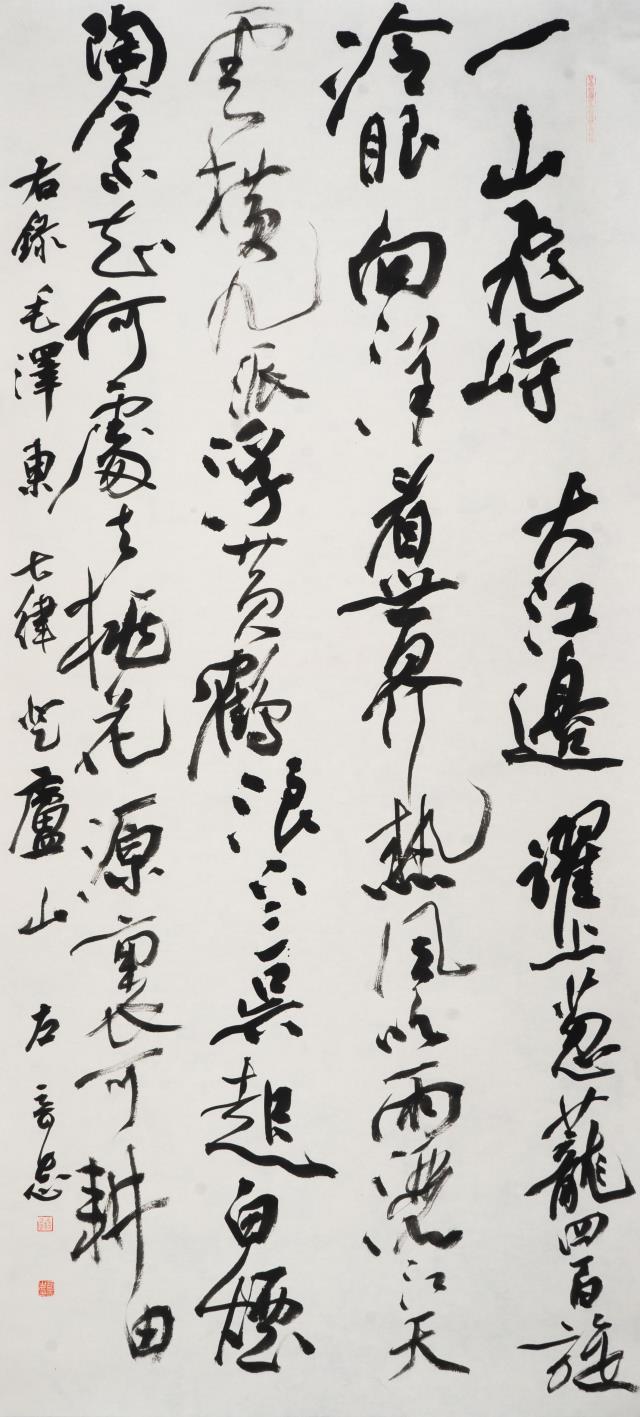 一山飛峙大江邊躍上葱蘢四百旋
冷眼向洋看世界熱風吹雨灑江天
雲橫九派浮黃鶴浪下三吳起白煙
陶令不知何處去桃花源裏可耕田
右錄毛澤東七律登廬山 左